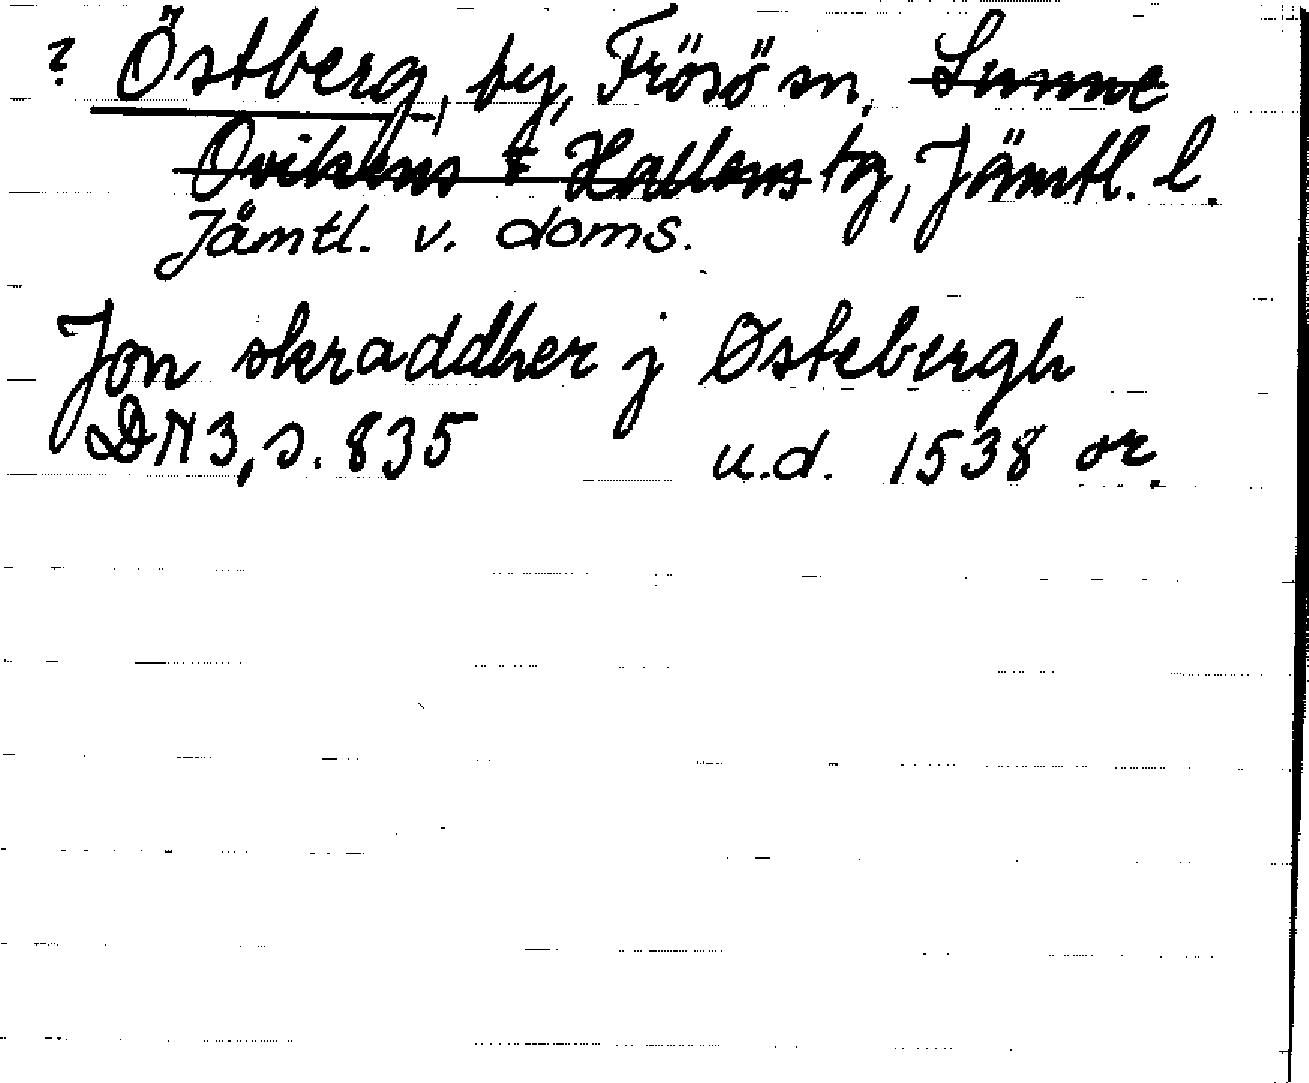 ? Östberg, by, Frösö sn, Sunne
Ovikens & Hallens tg, Jämtl. l.
Jämtl. v. doms.
Jon skraddher j Østebergh
DN 3, s. 835 u.d. 1538 or.